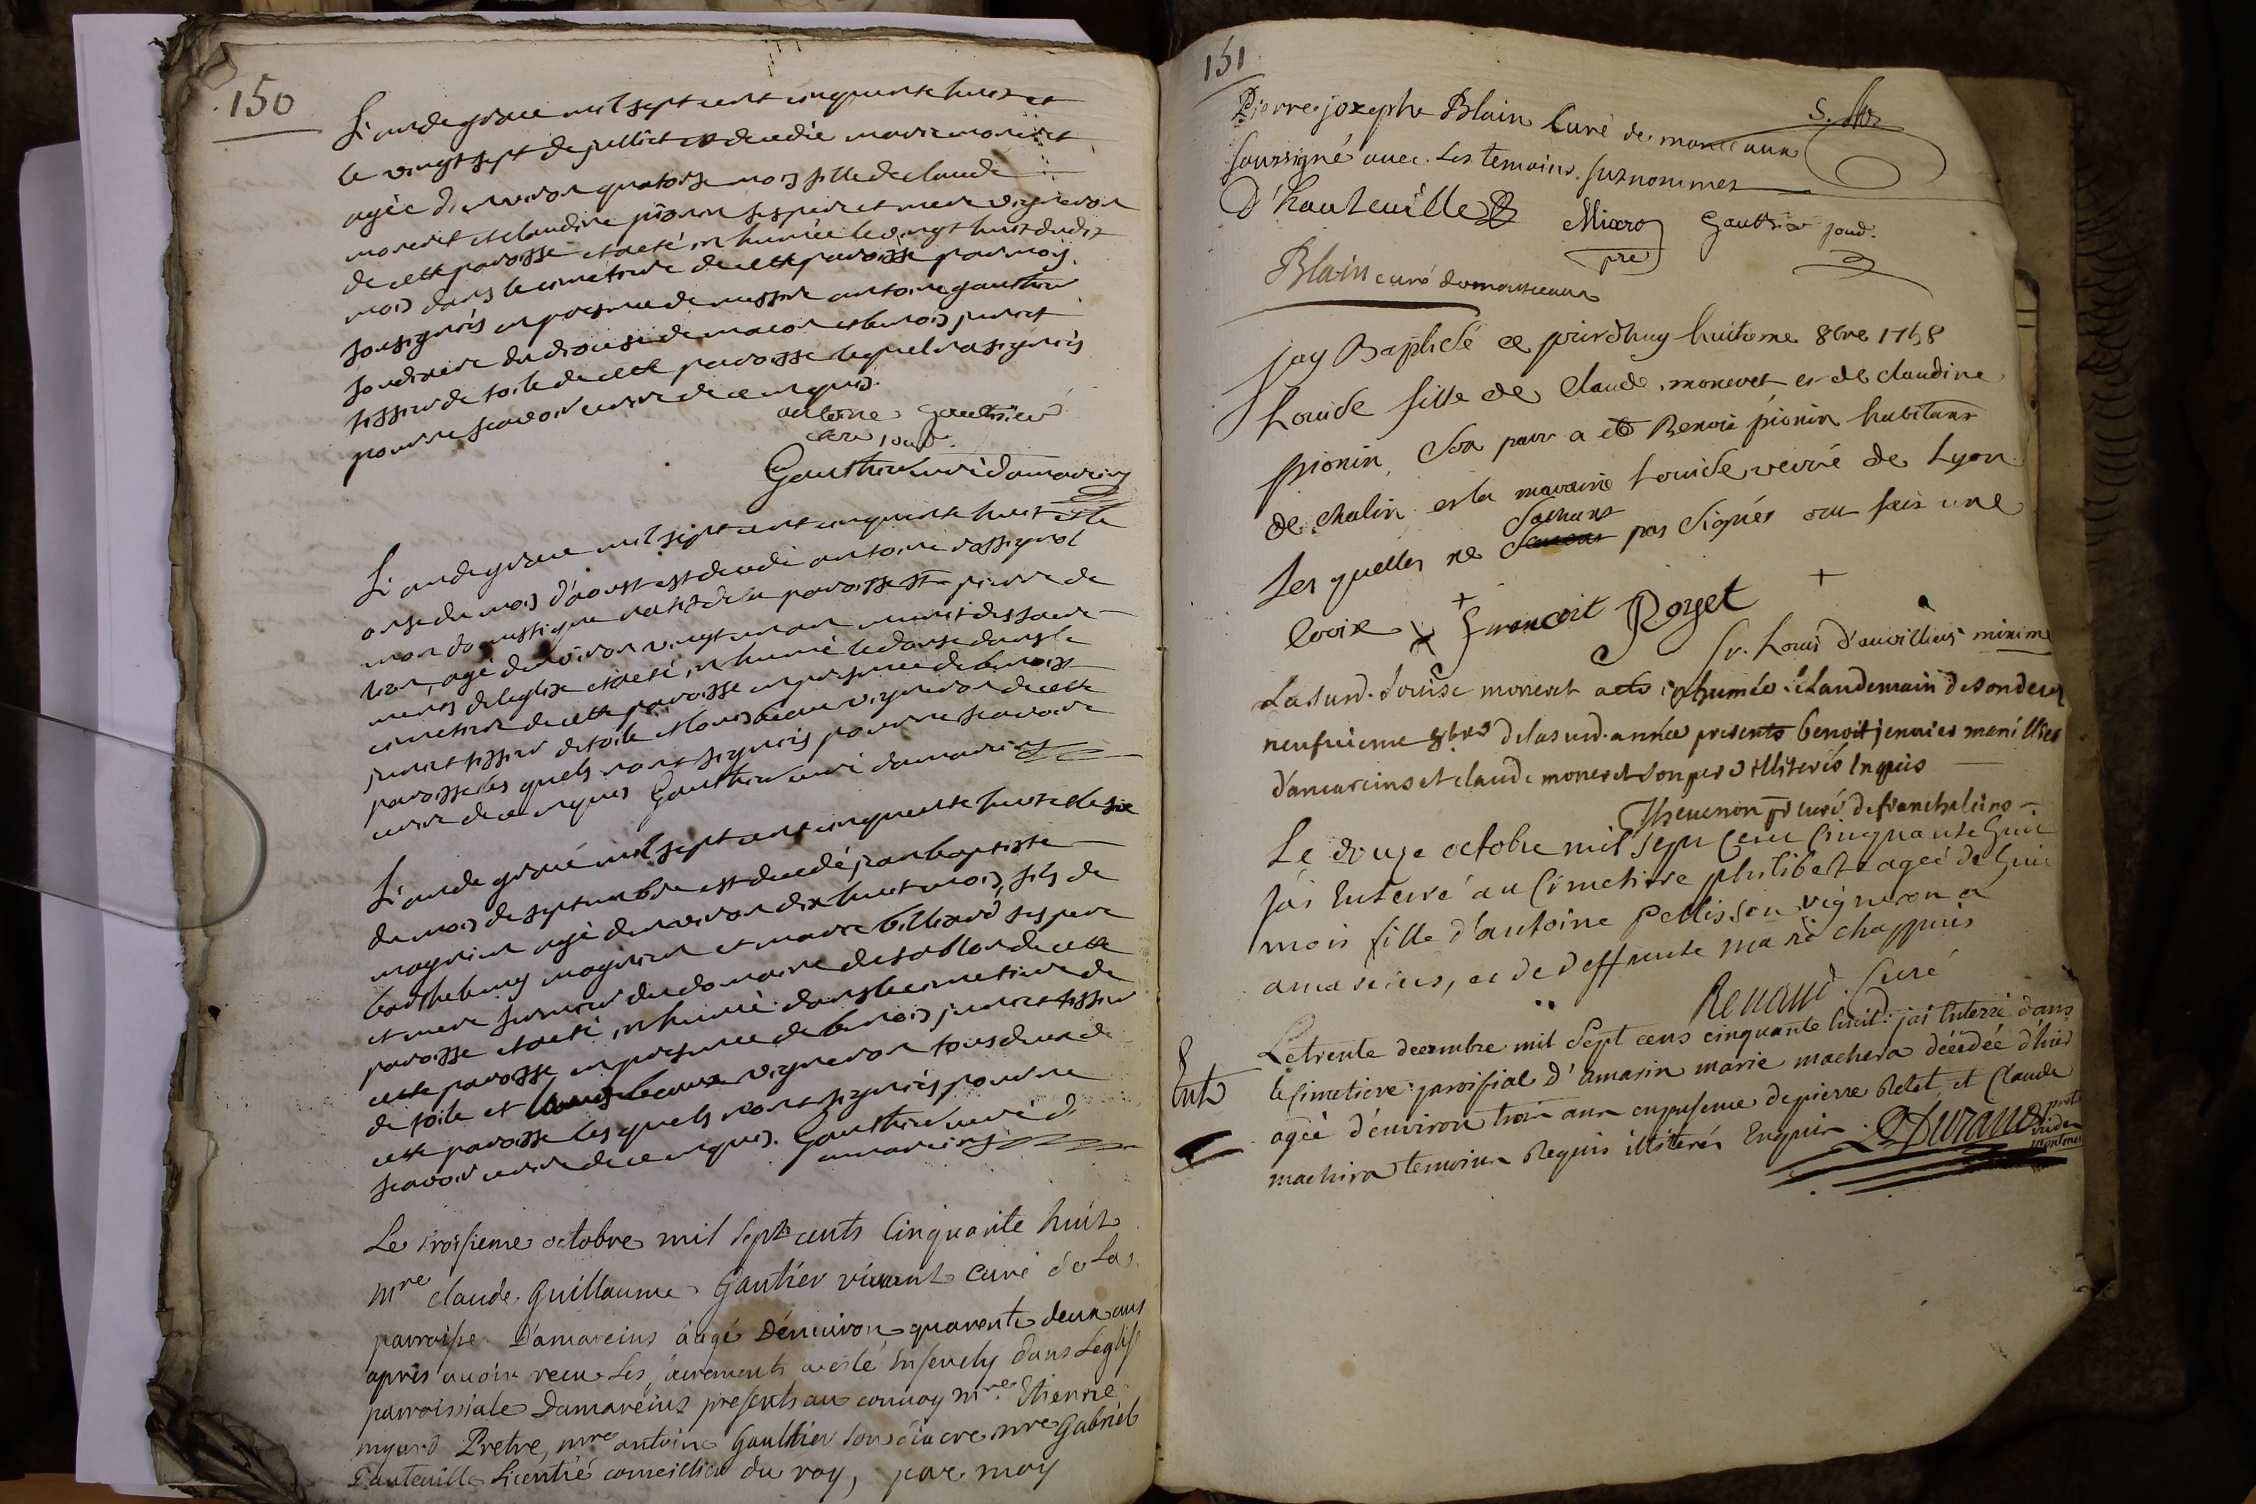 150
L'an de grace mil sept cent cinquante huit et
le vingt sept de julliet est decedée marie moneret
agée d'environ quatorse mois fille de claude
moneret et claudine pionin ses pere et mere vigneron
de cette paroisse et a eté inhumée le vingt huit dudit
mois dans le cimetiere de cette paroisse par moy
sousignés en presence de messire antoine gauthier
soudiacre du diocese de macon et benois junet
tissier de toile de cette paroisse lequel n'a signés
pour ne scavoir ecrire de ce enquis.
antoine gauthier
soud.
Gauthier curé damareins
L'an de grace mil sept cent cinquante huit et le
onse du mois d'aoust est decedé antoine rossignol
mon domestique natif de la paroisse st pierre de
agé d'environ vingt un an munit des sacre
ments de leglise et a eté inhumé le douse dans le
cimetiere de cette paroisse en presence de benoist
junet tissier de toile et louis beaux vigneron de cette
paroisse les quels n'ont signés pour ne scavoir
ecrire de ce enquis Gauthier curé damareins
L'an de grace mil sept cent cinquante huit et le six
du mois de septembre est decedé jean baptiste
magnien agé d'environ dix huit mois, fils de
magnien et marie billiard ses pere
et mere du domaine de sablon de cette
paroisse et a eté inhumé dans le cimetiere de
cette paroisse en presence de benois junet tissier
de toile et louis beaux vigneron tous deux de
cette paroisse les quels n'ont signés pour ne
scavoir ecrire de ce enquis. Gauthier curé d
amareins
Le troisieme octobre mil sept cents Cinquante huit
mre claude Guillaume Gautier vivant curé de La
parroisse Damareins âagé Dénuiron quarente deux ans
apres auoir receu Les sacrements a esté Enseuely dans Leglise
parroissiale Damareins presents au conuoy mre Etienne
myard Pretre, mre antoine Gaultier Soudiacre mre Gabriel
Dauteuille Licentié conseiller du roy, par moy
151
Pierre joseph Blain Curé de monceaux
soussigné auec Les temoins susnommes
D'hauteuille Gauthier soud.
pre
Blain curé de monceaux
jay Baptisé ce jourdhuy huitieme 8bre 1758
Louise fille de Claude moneret et de claudine
pionin, Son parr a eté Benoit pionin habitant
de chalin et la maraine Louise verré de Lyon
Sachant
Les quelles ne pas Signér ont fait une
Croix + francoit Royet +
fr. Louis d'auvilliers minime
Lasusd. Louise moneret a eté inhumée le landemain de son deces
neufuieme 8bre de lasusd. année presents benoit jenniet
damareins et claude moneret son pere illiterés Enquis
Theuenon curé de francheleins
Le douze octobre mil sept Cent Cinquante huit
J'ai Enterré au Cimetiere philiberte agée de huit
mois fille d'antoine Pellisson vigneron a
amareins, et de deffunte marie chappuis
Renaud. Curé
Ent
Le trente decembre mil Sept cens cinquante huit j'ai Enterré dans
le Cimetiere paroissial d'amarin marie machera décédée d'hier
agée d'environ trois ans en presence de pierre Relet et Claude
machira temoins Requis illiterés Enquis. Durand